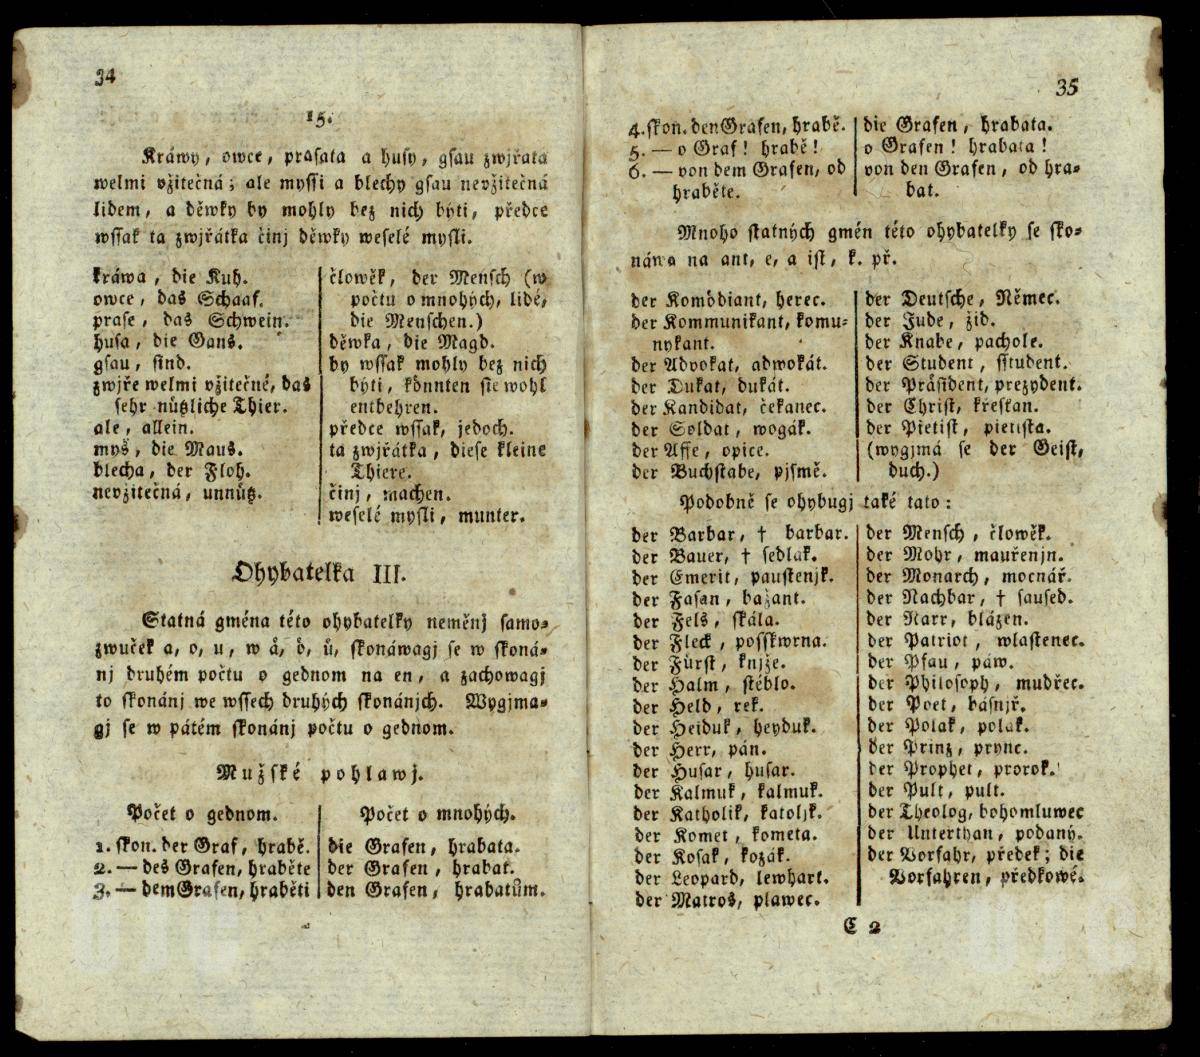 34
15.
Kráwy, owce, prasata a husy, gsau zwjřata
welmi vžitečná; ale myssi a blechy gsau nevžitečná
lidem, a děwky by mohly bez nich býti, předce
wssak ta zwjřátka činj děwky weselé mysli.
kráwa, die Kuh.
owce, das Schaaf.
prase, das Schwein.
husa, die Gans.
gsau, sind.
zwjře welmi vžitečné, das
sehr nůtzliche Thier.
ale, allein.
myš, die Maus.
blecha, der Floh.
nevžitečná, unnůtz.
člowěk, der Mensch (w
počtu o mnohých, lidé,
die Menschen.)
děwka, die Magd.
by wssak mohly bez nich
býti, kônnten sie wohl
entbehren.
předce wssak, jedoch.
ta zwjřátka, diese kleine
Thiere.
činj, machen.
weselé mysli, munter.
Ohybatelka III.
Statná gména této ohybatelky neměnj samo-
zwuček a, o, u, w å, ô, ů, skonáwagj se w skoná-
nj druhém počtu o gednom na en, a zachowagj
to skonánj we wssech druhých skonánjch. Wygjma-
gj se w pátém skonánj počtu o gednom.
Mužské pohlawj.
Počet o gednom.
1. skon. der Graf, hrabě.
2. — des Grafen, hraběte
3. — dem Grafen, hraběti
Počet o mnohých.
die Grafen, hrabata.
der Grafen, hrabat.
den Grafen, hrabatům.
35
4. skon. den Grafen, hrabě.
5. — o Graf! hrabě!
6. — von dem Grafen, od
hraběte.
die Grafen, hrabata.
o Grafen! hrabata!
von den Grafen, od hra-
bat.
Mnoho statných gmén této ohybatelky se sko-
náwa na ant, e, a ist, k. př.
der Komödiant, herec.
der Kommunikant, komu-
nykant.
der Advokat, adwokát.
der Dukat, dukát.
der Kandidat, čekanec.
der Soldat, wogák.
der Affe, opice.
der Buchstabe, pjsmě.
der Deutsche, Němec.
der Jude, žid.
der Knabe, pachole.
der Student, sstudent.
der Präsident, prezydent.
der Christ, křesťan.
der Pietist, pietista.
(wygjmá se der Geist,
duch.)
Podobně se ohybugj také tato:
der Barbar, † barbar.
der Bauer, † sedlak.
der Emerit, paustenjk.
der Fasan, bažant.
der Fels, skála.
der Fleck, posskwrna.
der Fürst, knjže.
der Halm, stéblo.
der Held, rek.
der Heiduk, heyduk.
der Herr, pán.
der Husar, husar.
der Kalmuk, kalmuk.
der Katholik, katoljk.
der Komet, kometa.
der Kosak, kozák.
der Leopard, lewhart.
der Matros, plawec.
der Mensch, člowěk.
der Mohr, mauřenjn.
der Monarch, mocnář.
der Nachbar, † saused.
der Narr, blázen.
der Patriot, wlastenec.
der Pfau, páw.
der Philosoph, mudřec.
der Poet, básnjř.
der Polak, polak.
der Prinz, prync.
der Prophet, prorok.
der Pult, pult.
der Theolog, bohomluwec
der Unterthan, podaný.
der Vorfahr, předek; die
Vorfahren, předkowé.
C 2